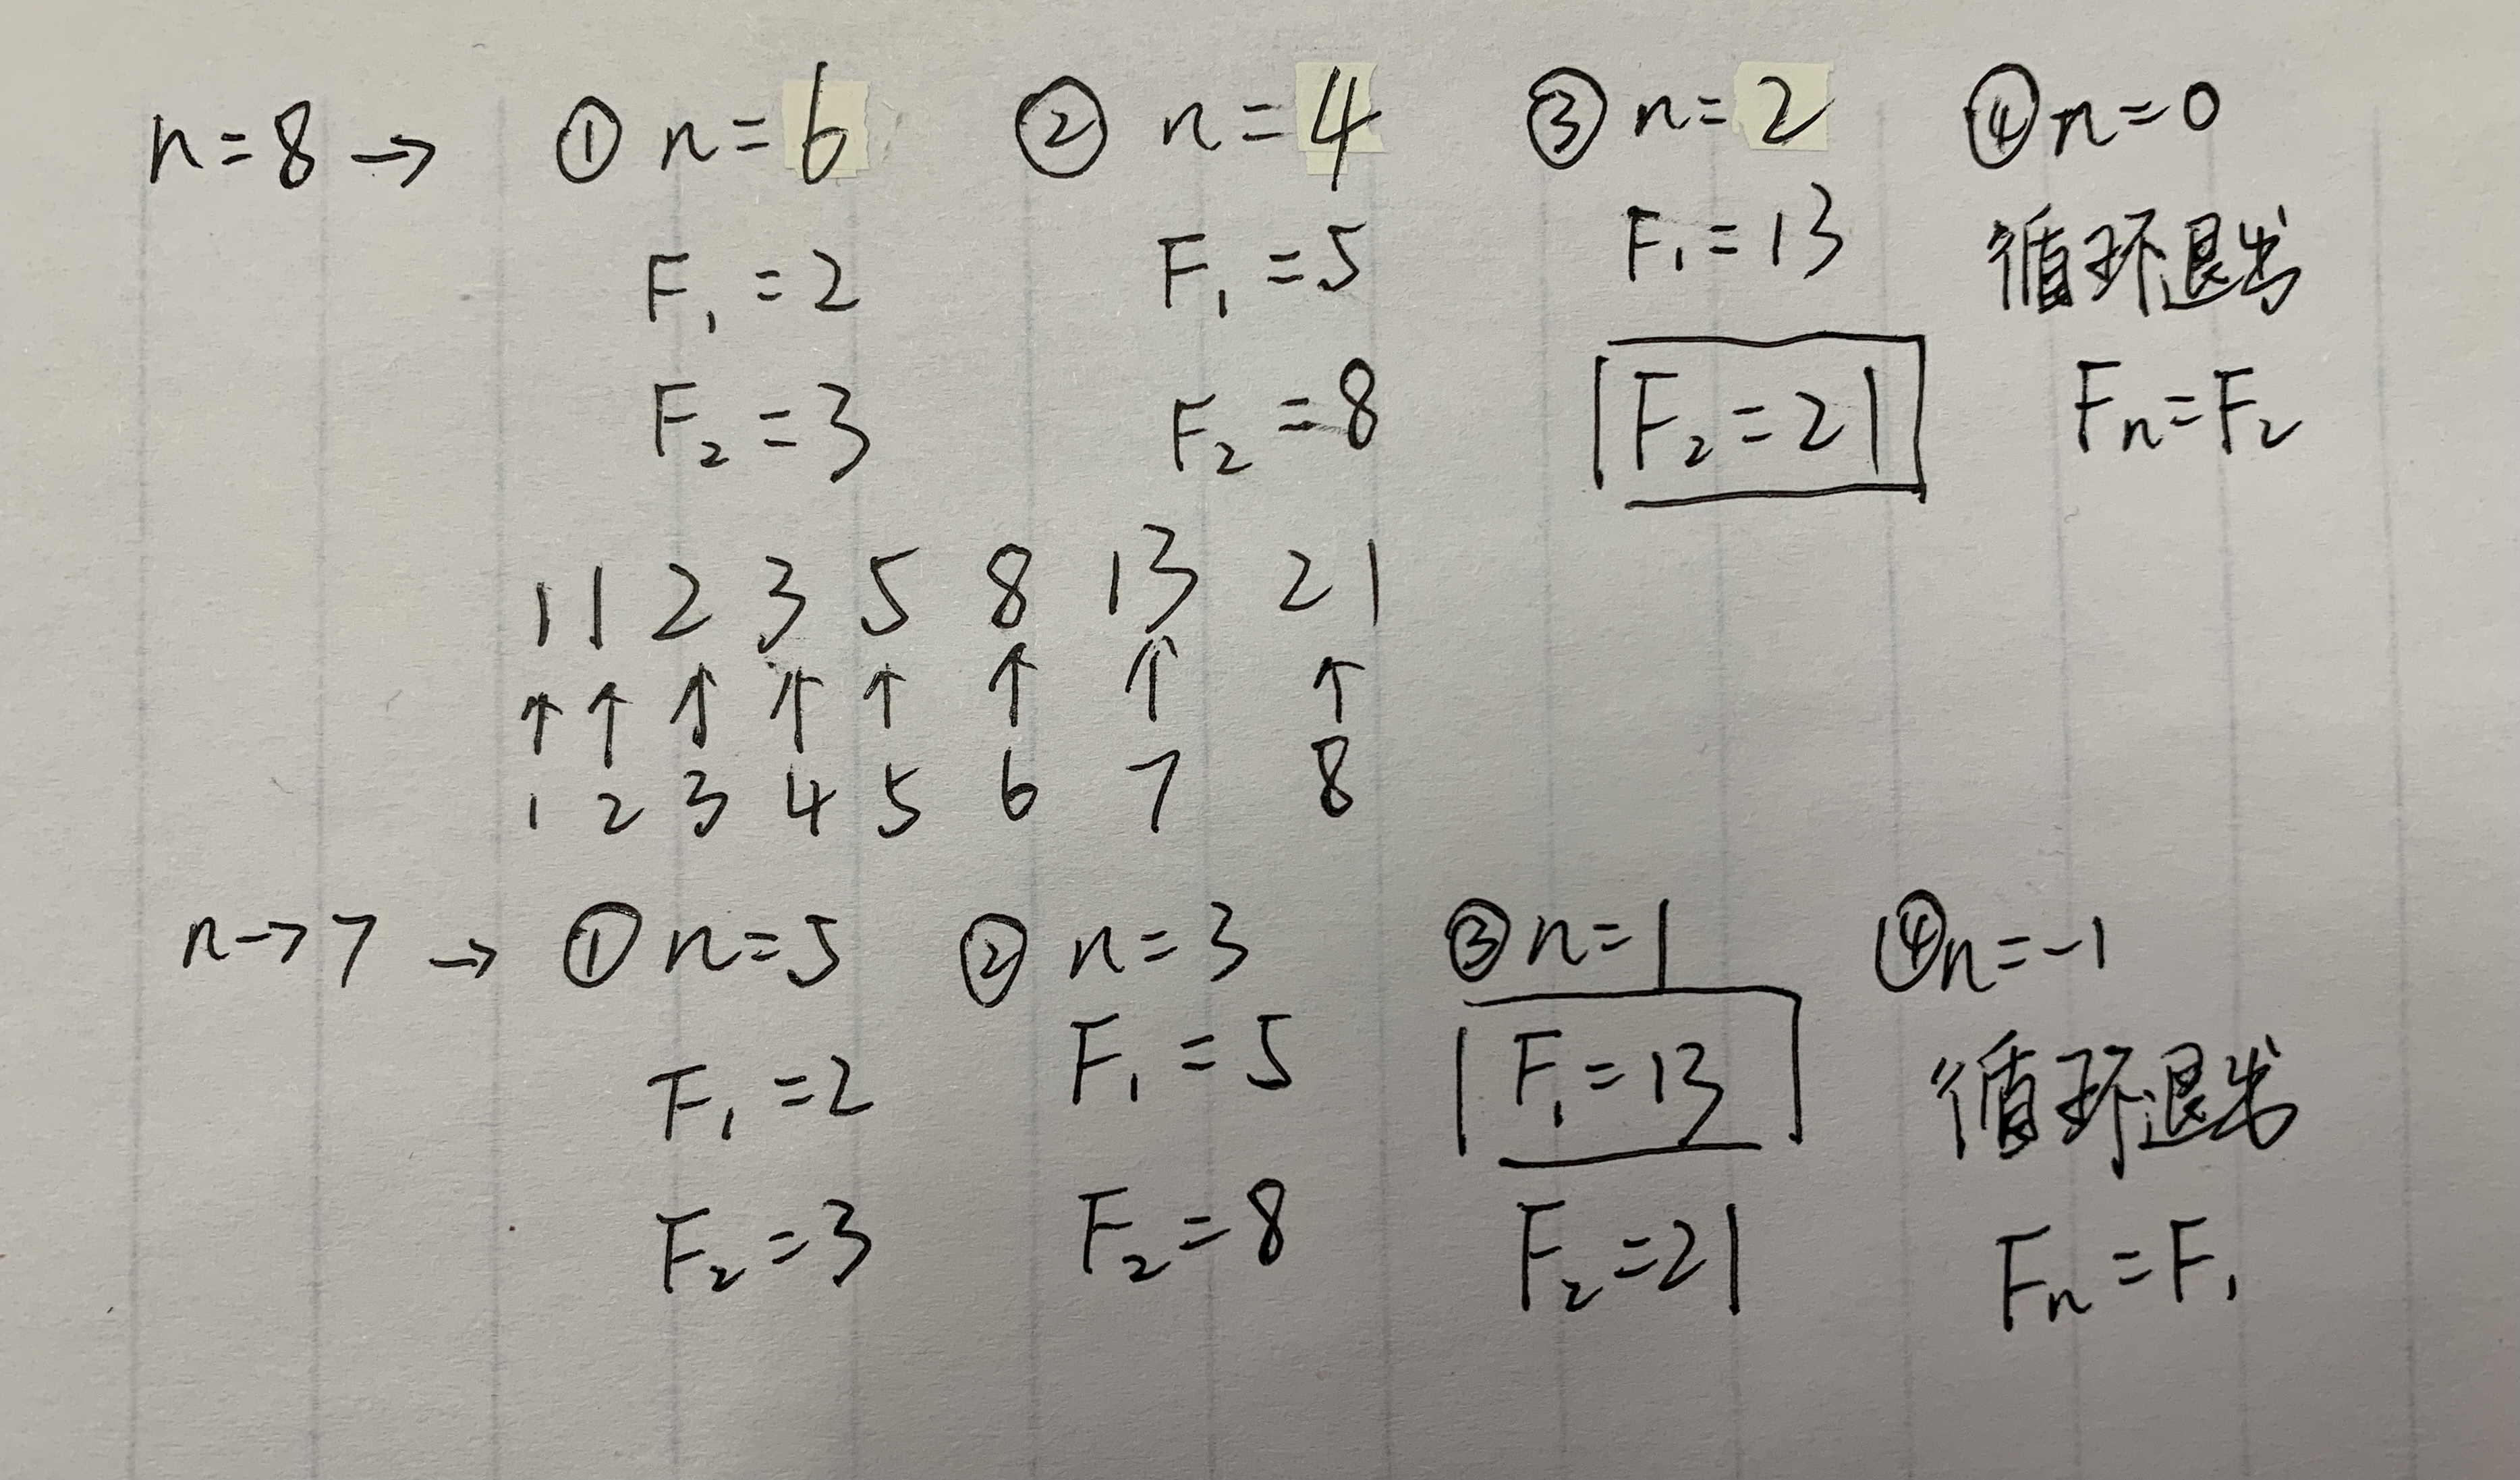 n=8→ ① n=6 ② n=4 ③ n=2 ④ n=0
F₁=2 F₁=5 F₁=13 循环退出
F₂=3 F₂=8 F₂=21 Fn=F₂
1 1 2 3 5 8 13 21
↑ ↑ ↑ ↑ ↑ ↑ ↑ ↑
1 2 3 4 5 6 7 8
n→7 → ① n=5 ② n=3 ③ n=1 ④ n=-1
F₁=2 F₁=5 F₁=13 循环退出
F₂=3 F₂=8 F₂=21 Fn=F₁